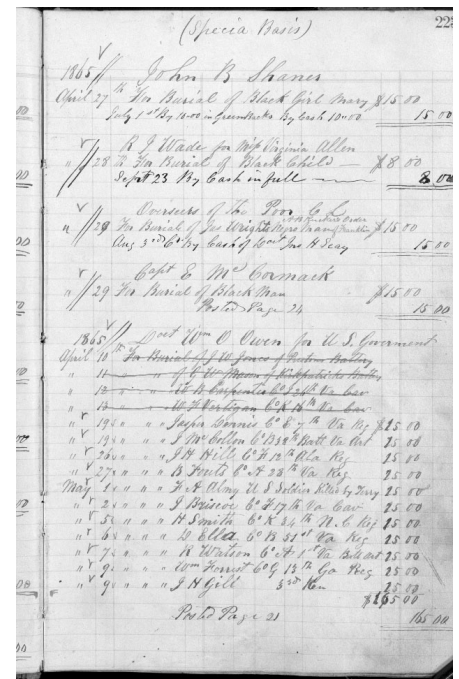 (Specia Basis)
223
1865 John R Shaner
April 27th For Burial of Black Girl Mary $15.00
July 1st By 10.00 in GreenBacks By Cash 10.00 15 00
R J Wade for Miss Virginia Allen
" 28 To For Burial of Black Child $8 00
Sept 23 By Cash in full 8 00
Overseers of the Poor C L
" 29 For Burial of Jas Wright $15 00
Aug 3rd By Cash of Doct Jno H Seay 15 00
Capt E McCormack
" 29 For Burial of Black Man $15 00
Posted Page 24 15 00
1865 Doct Wm O Owen for U S Goverment
April 10th For Burial of J W Jones of
" 11 " " of G W Mason of Kilpatricks
" 12 " " W B Carpenter Co 2nd Va Cav
" 13 " " W H Co K 16th Va Cav
" 19 " " " Jasper Co E 7th Va Reg $15 00
" 19 " " " J McCollon Co B 38th Batt Va Art 15 00
" 26 " " " J H Hill Co F 12th Ala Reg 15 00
" 27 " " " B Fouts Co A 28th Va Reg 15 00
May 1 " " " F A Almy U S Soldier Killed by Terry 25 00
" 2 " " " J Briscoe Co F 17th Va Cav 15 00
" 5 " " " H Smith Co K 24th N.C Reg 15 00
" 6 " " " D Ella Co B 51st Va Reg 15 00
" 7 " " " R Watson Co A 1st Va Batt art 15 00
" 9 " " " Wm Forrest Co G 13th Ga Reg 15 00
" 9 " " " J H Gill 3rd 15 00
$165 00
Posted Page 21 165 00